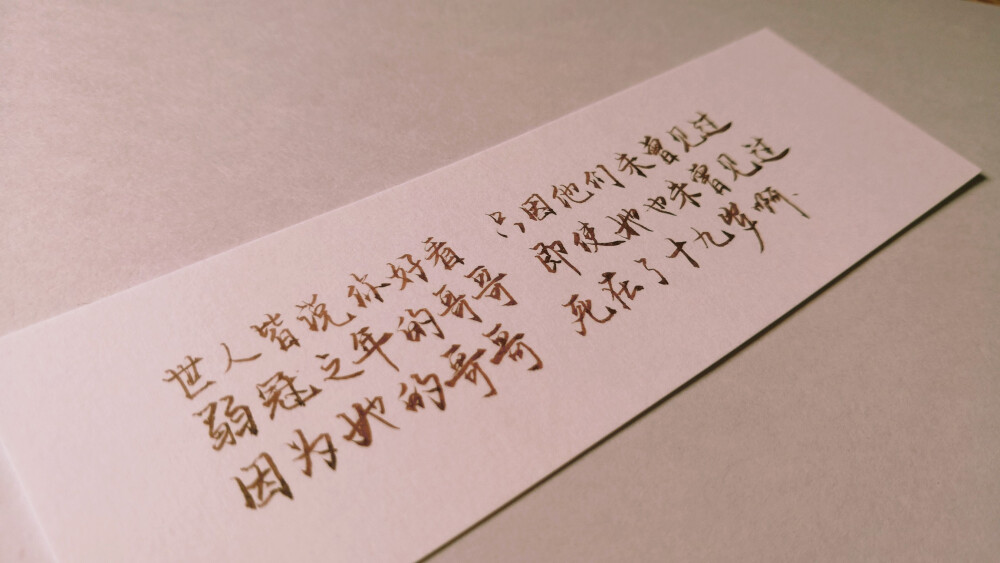 世人皆说你好看 只因他们未曾见过
弱冠之年的哥哥 即使她也未曾见过
因为她的哥哥 死在了十九岁啊、